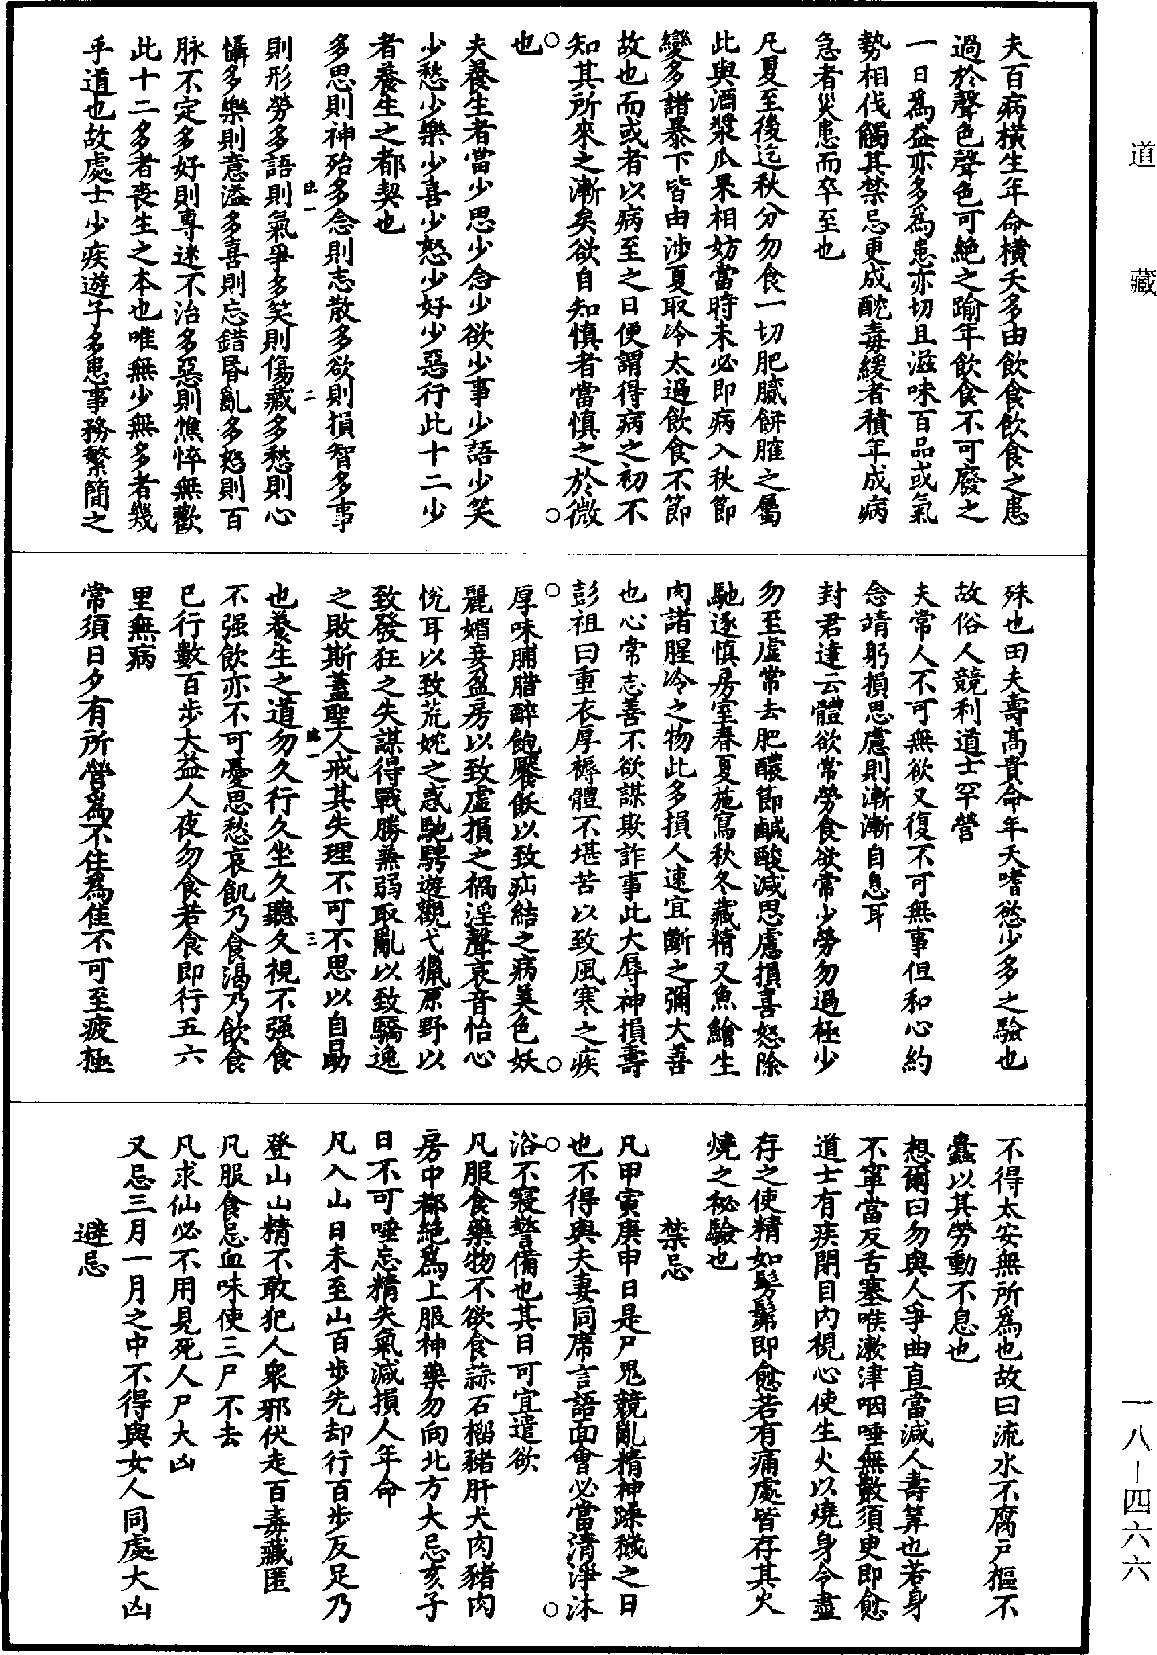 道藏
夫百病橫生年命橫夭多由飲食飲食之患
過於聲色聲色可絕之踰年飲食不可廢之
一日為益亦多為患亦切且滋味百品或氣
勢相伐觸其禁忌更成酖毒緩者積年成病
急者災患而卒至也
凡夏至後迄秋分勿食一切肥膩餅臛之屬
此與酒漿瓜果相妨當時未必即病入秋節
變多諸暴下皆由涉夏取冷太過飲食不節
故也而或者以病至之日便謂得病之初不
知其所來之漸矣欲自知慎者當慎之於微
也
夫養生者當少思少念少欲少事少語少笑
少愁少樂少喜少怒少好少惡行此十二少
者養生之都契也
多思則神殆多念則志散多欲則損智多事
則形勞多語則氣爭多笑則傷藏多愁則心
懾多樂則意溢多喜則忘錯昏亂多怒則百
脉不定多好則專迷不治多惡則憔悴無歡
此十二多者喪生之本也唯無少無多者幾
乎道也故處士少疾遊子多患事務繁簡之
殊也田夫壽高貴命年夭嗜慾少多之驗也
故俗人競利道士罕營
夫常人不可無欲又復不可無事但和心約
念靖躬損思慮則漸漸自息耳
封君達云體欲常勞食欲常少勞勿過極少
勿至虛常去肥醲節鹹酸減思慮損喜怒除
馳逐慎房室春夏施寫秋冬藏精又魚鱠生
肉諸腥冷之物此多損人速宜斷之彌大善
也心常志善不欲謀欺詐事此大辱神損壽
彭祖曰重衣厚褥體不堪苦以致風寒之疾
厚味脯腊醉飽饜飫以致疝結之病美色妖
麗媚妾盈房以致虛損之禍淫聲哀音怡心
悅耳以致荒婉之惑馳騁遊觀弋獵原野以
致發狂之失謀得戰勝兼弱取亂以致驕逸
之敗斯蓋聖人戒其失理不可不思以自勗
也養生之道勿久行久坐久聽久視不强食
不强飲亦不可憂思愁哀飢乃食渴乃飲食
已行數百步大益人夜勿食若食即行五六
里無病
常須日夕有所營為不住為佳不可至疲極
不得太安無所為也故曰流水不腐戶樞不
蠹以其勞動不息也
想爾曰勿與人爭曲直當減人壽筭也若身
不寧當反舌塞喉漱津咽唾無數須臾即愈
道士有疾閉目內視心使生火以燒身令盡
存之使精如髣髴即愈若有痛處皆存其火
燒之秘驗也
禁忌
凡甲寅庚申日是尸鬼競亂精神躁穢之日
也不得與夫妻同席言語面會必當清淨沐
浴不寢警備也其日可宜遣欲
凡服食藥物不欲食蒜石榴豬肝犬肉豬肉
房中都絕為上服神藥勿向北方大忌亥子
日不可唾忘精失氣減損人年命
凡入山日未至山百步先却行百步反足乃
登山山精不敢犯人衆邪伏走百毒藏匿
凡服食忌血味使三尸不去
凡求仙必不用見死人尸大凶
又忌三月一月之中不得與女人同處大凶
避忌
一八—四六六